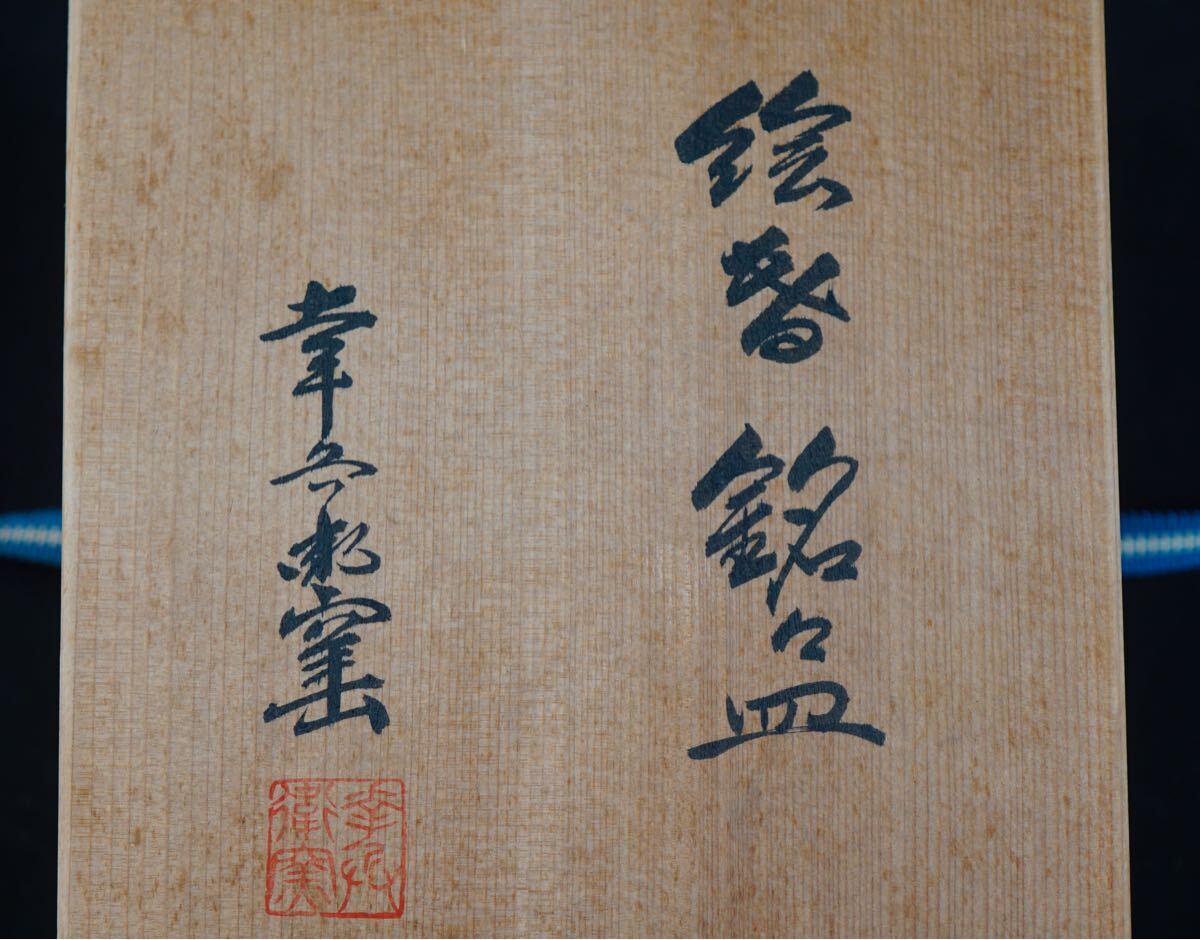 絵替銘々皿
幸兵衛窯
幸兵衛窯